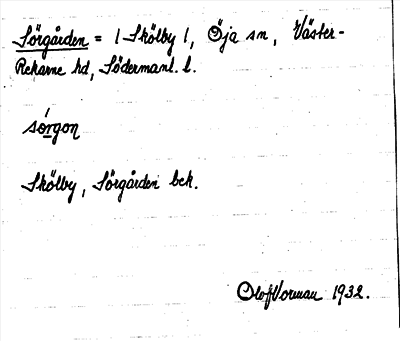 Sörgården = 1 Skölby 1, Öja sn, Väster-
Rekarne hd, Södermanl. l.
sórgon
Skölby, Sörgården bek.
Olof Vorman 1932.